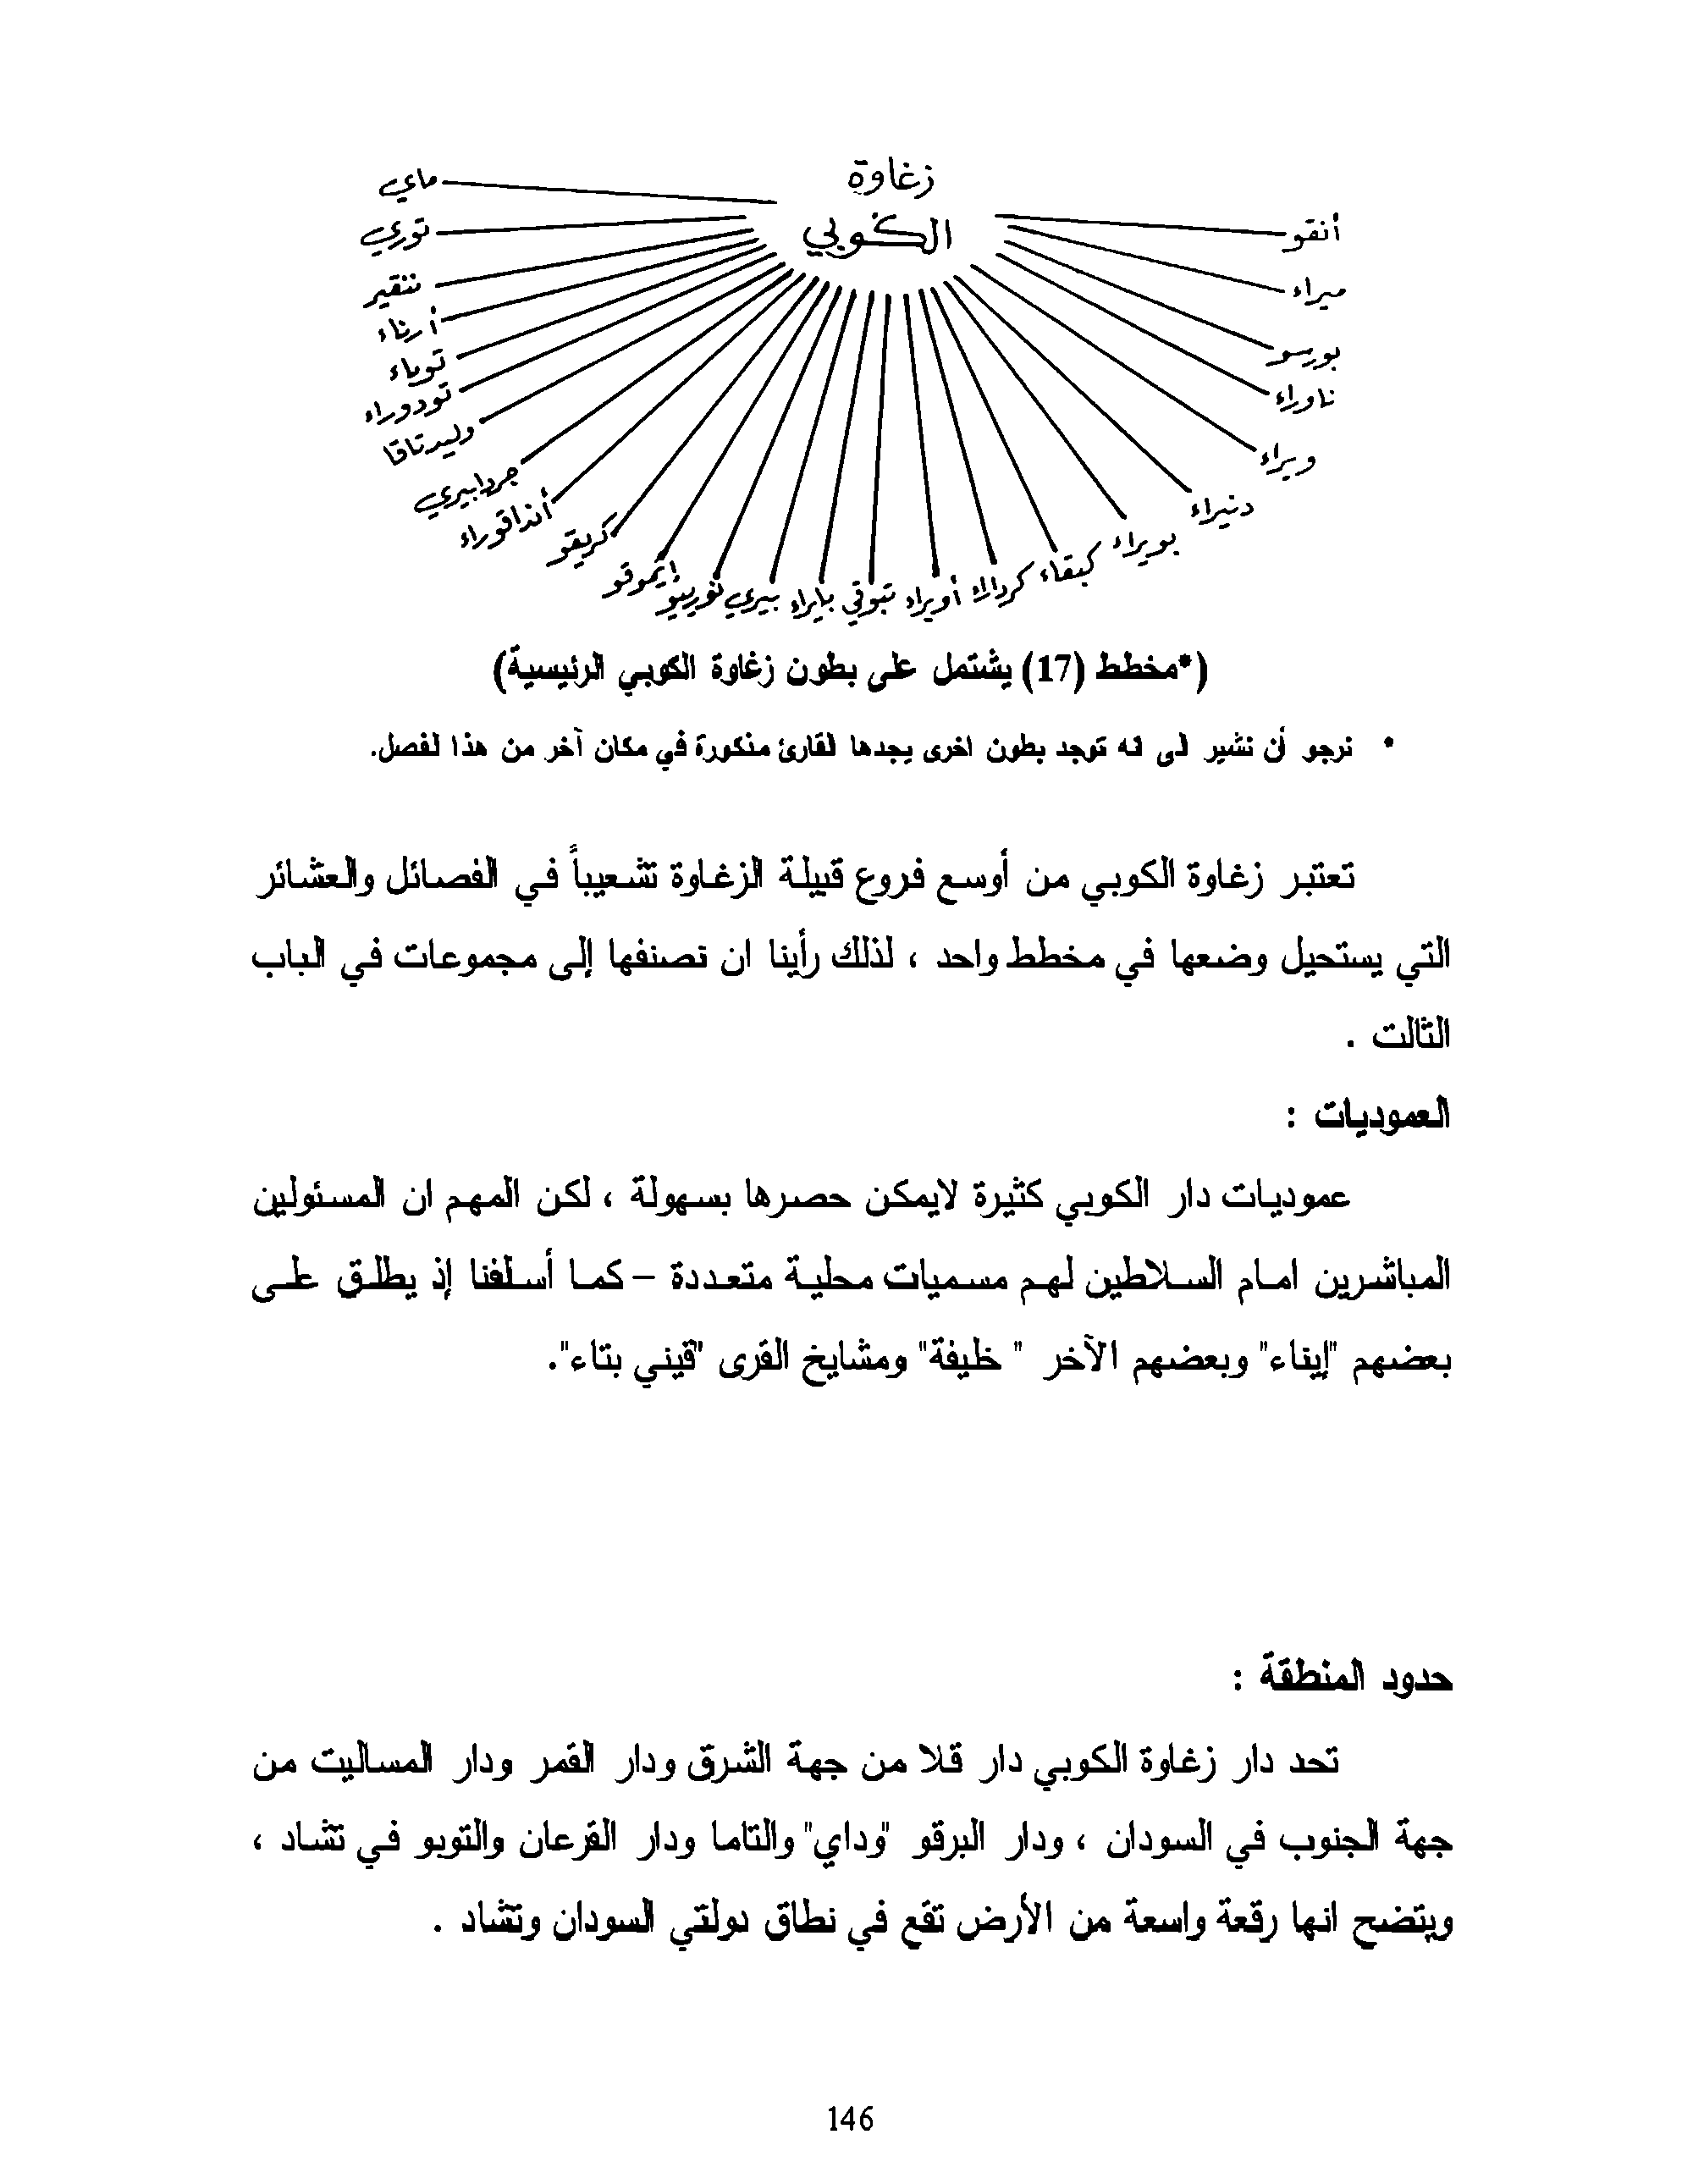 زغاوة
الكوبي
أنقو
ميراء
بورسو
ناوراء
ويراء
دنيراء
بويراء
كبقاء
أويراء
تبوقي
بايراء
بيري
إيموقو
كريقو
أنداقوراء
جردابيري
وليدتاقا
تودوراء
توباء
أرناء
ننقير
توري
ماي
(*مخطط (17) يشتمل على بطون زغاوة الكوبي الرئيسية)
• نرجو أن نشير الى انه توجد بطون اخرى يجدها القارئ مذكورة في مكان آخر من هذا الفصل.
تعتبر زغاوة الكوبي من أوسع فروع قبيلة الزغاوة تشعيباً في الفصائل والعشائر
التي يستحيل وضعها في مخطط واحد ، لذلك رأينا ان نصنفها إلى مجموعات في الباب
الثالث .
العموديات :
عموديات دار الكوبي كثيرة لايمكن حصرها بسهولة ، لكن المهم ان المسئولين
المباشرين امام السلاطين لهم مسميات محلية متعددة – كما أسلفنا إذ يطلق على
بعضهم "إيناء" وبعضهم الآخر " خليفة" ومشايخ القرى "قيني بتاء".
حدود المنطقة :
تحد دار زغاوة الكوبي دار قلا من جهة الشرق ودار القمر ودار المساليت من
جهة الجنوب في السودان ، ودار البرقو "وداي" والتاما ودار القرعان والتوبو في تشاد ،
ويتضح انها رقعة واسعة من الأرض تقع في نطاق دولتي السودان وتشاد .
146